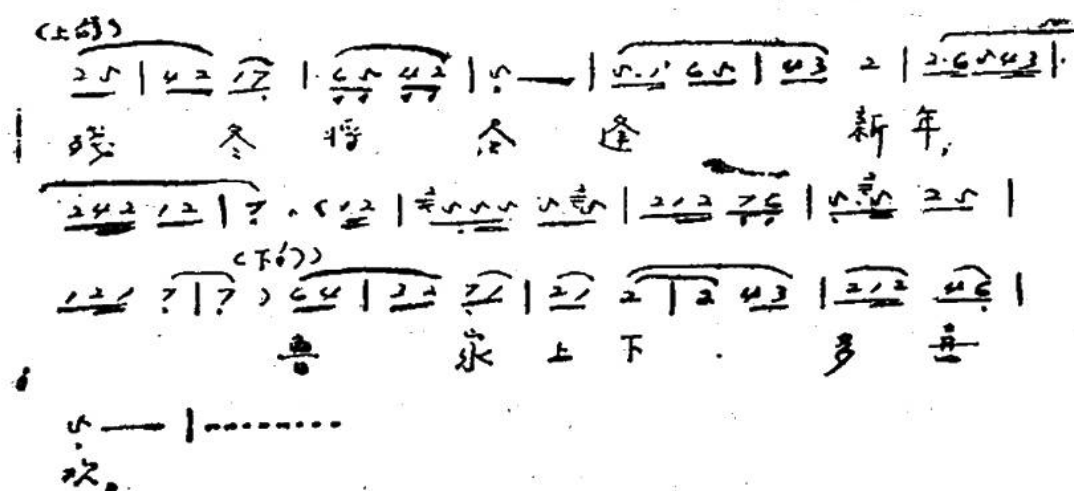 (上句)
2 5 | 4 2 1 7 | 6 5 4 2 | 5 — | 5. 1 6 5 | 4 3 2 | 2. 6 5 4 3 |
残 冬 将 尽 逢 新 年,
2 4 2 1 2 | 7 . ( 1 2 | 5 5 5 5 5 | 2 1 2 7 6 | 5. 5 2 5 |
(下句)
1 2 1 7 | 7 ) 6 4 | 3 2 7 1 | 2 1 2 | 2 4 3 | 2 1 2 4 6 |
家 上 下 多 喜
5 — |
欢。